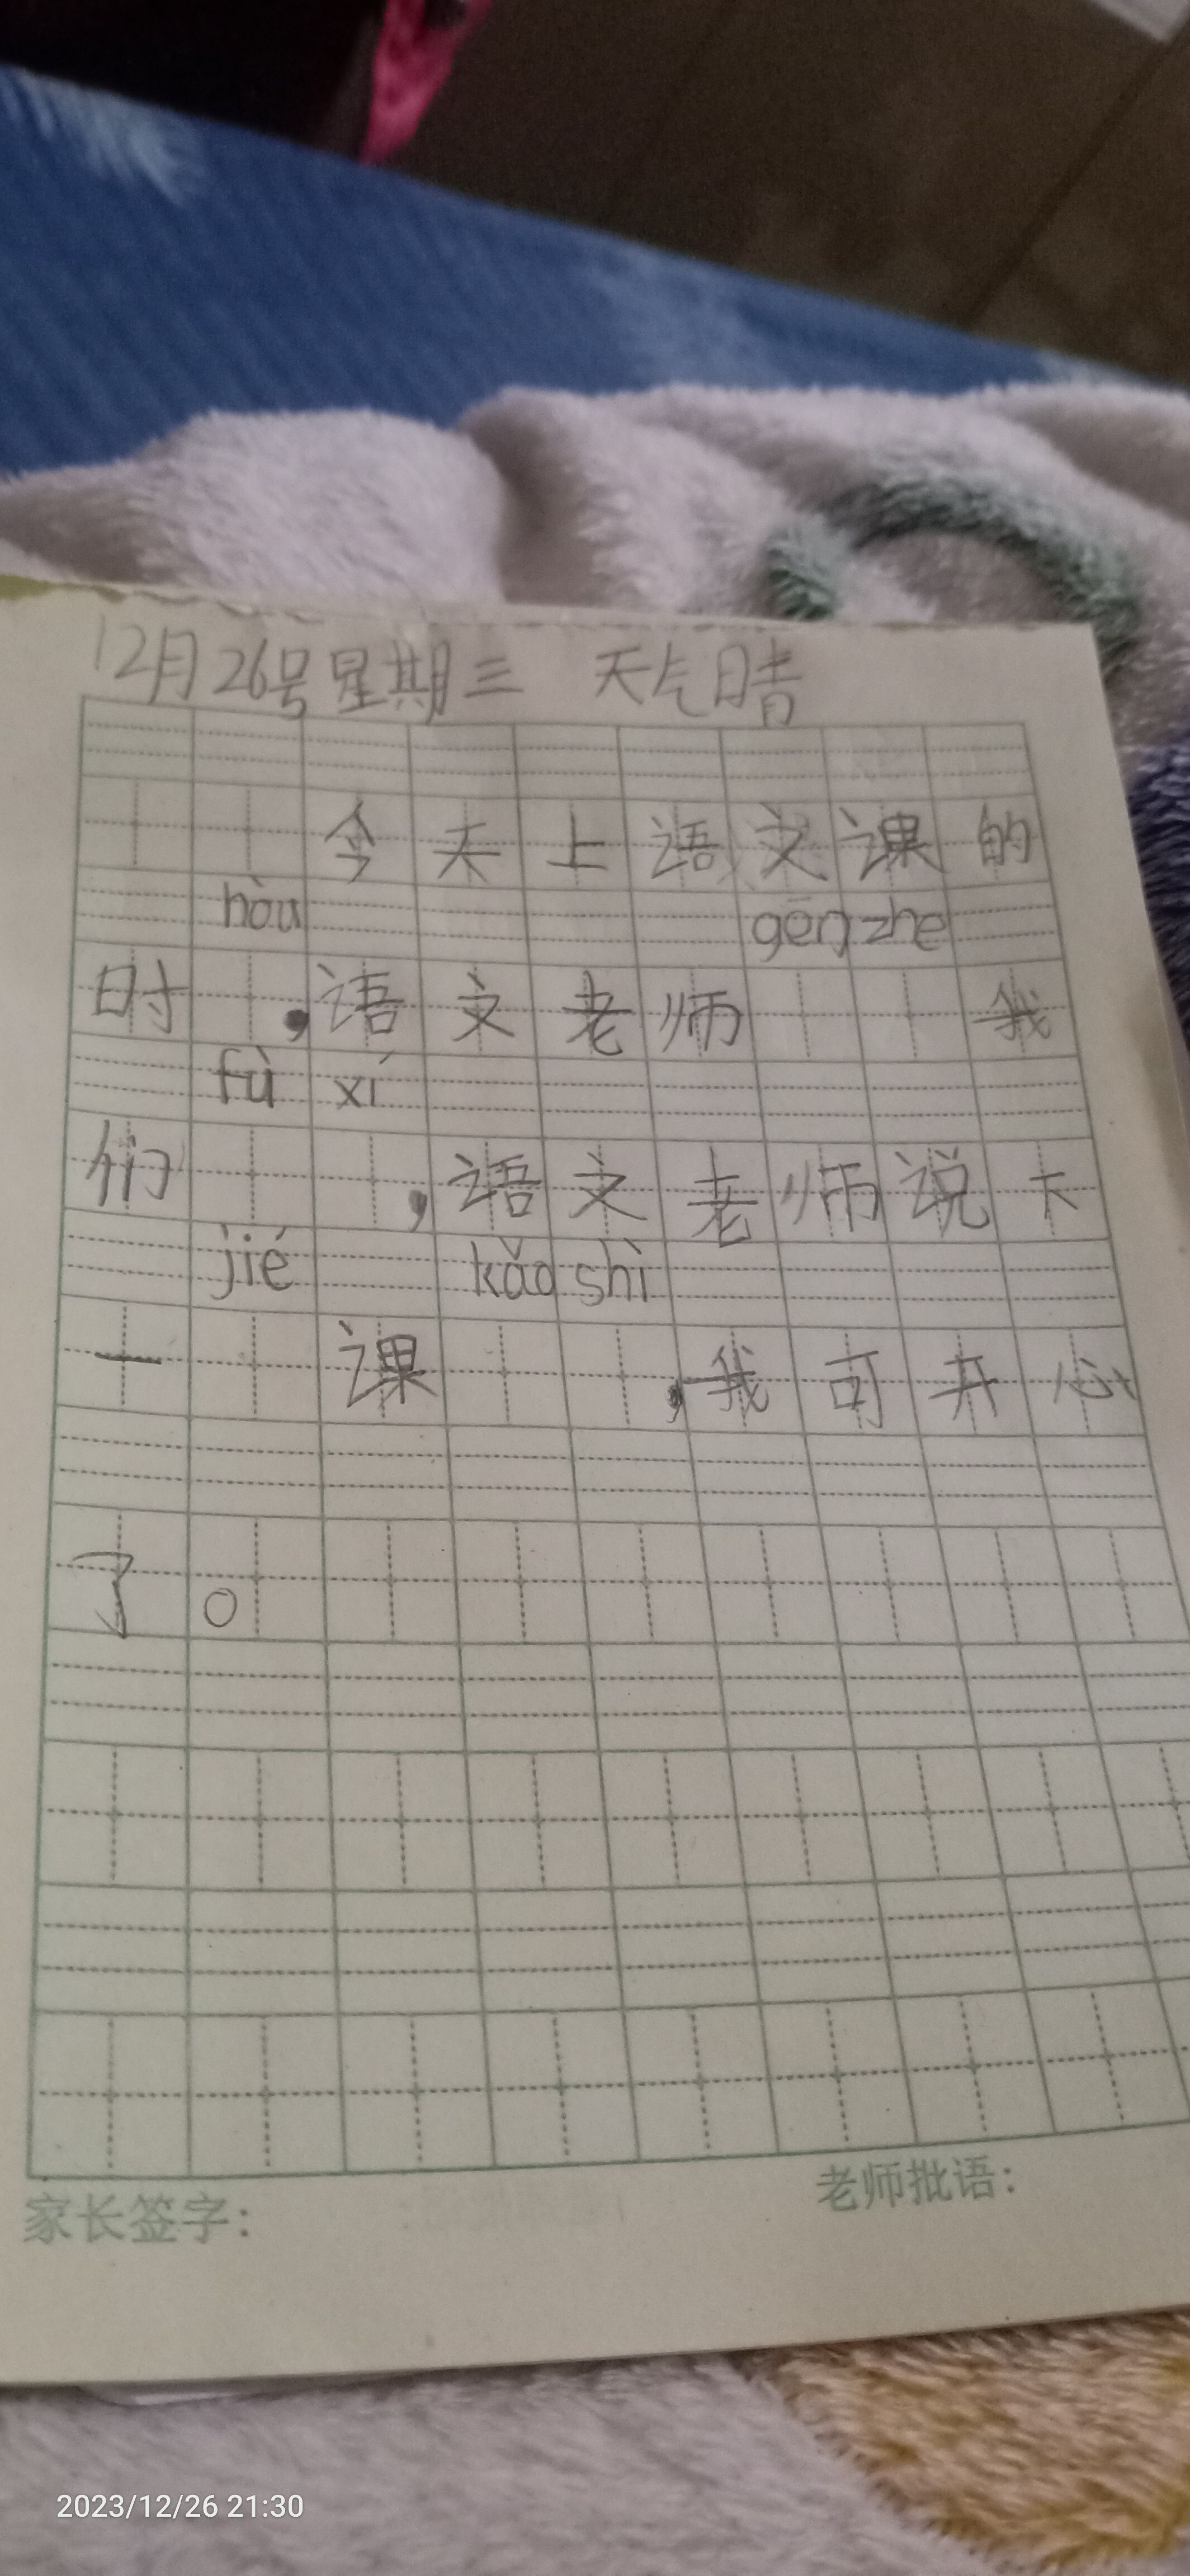 12月26号星期三 天气晴
今天上语文课的
hòu gēn zhe
时,语文老师 我
fù xí
们 ,语文老师说下
jié kǎo shì
一 课 ,我可开心
了。
家长签字: 老师批语:
2023/12/26 21:30